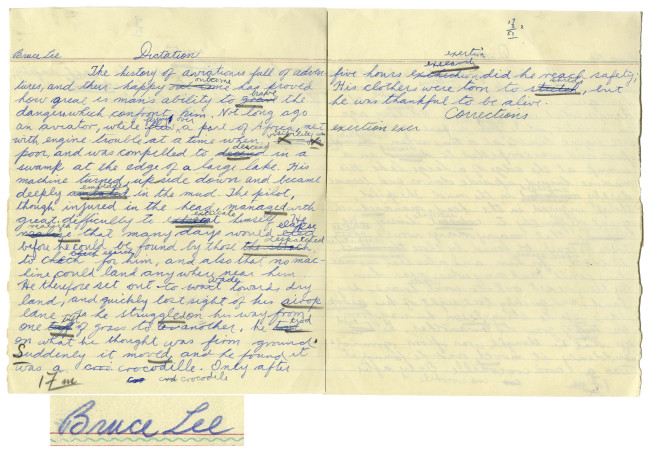 Bruce Lee Dictation
The history of aviation is full of adven-
outcome
tures, and their happy has proved
brave
how great is man's ability to the
dangers witch confront him. Not long ago
flying over
an aviator, while a part of Africa, met
visibility was
with engine trouble at a time when
descend
poor, and was compelled to in a
swamp at the edge of a large lake. His
machine turned upside down and became
deeply in the mud. The pilot,
though injured in the head, managed with
extricate
great difficulty to himself. He
elapse
that many days would
before he could be found by those
despatched
to for him, and also that no mac-
hine could land any where near him.
wade
He therefore set out to towards dry
land, and quickly lost sight of his airop
lane as he struggled on his way from
tuft
one of grass to another, he
trod
on what he thought was firm ground.
Suddenly it moved, and he found it
was a crocodille. Only after
crocodile
17 m
exertion
five hours did he reach safety;
shreds
His clothers were torn to , but
he was thankful to be alive.
Corrections
exertion exer
Bruce Lee